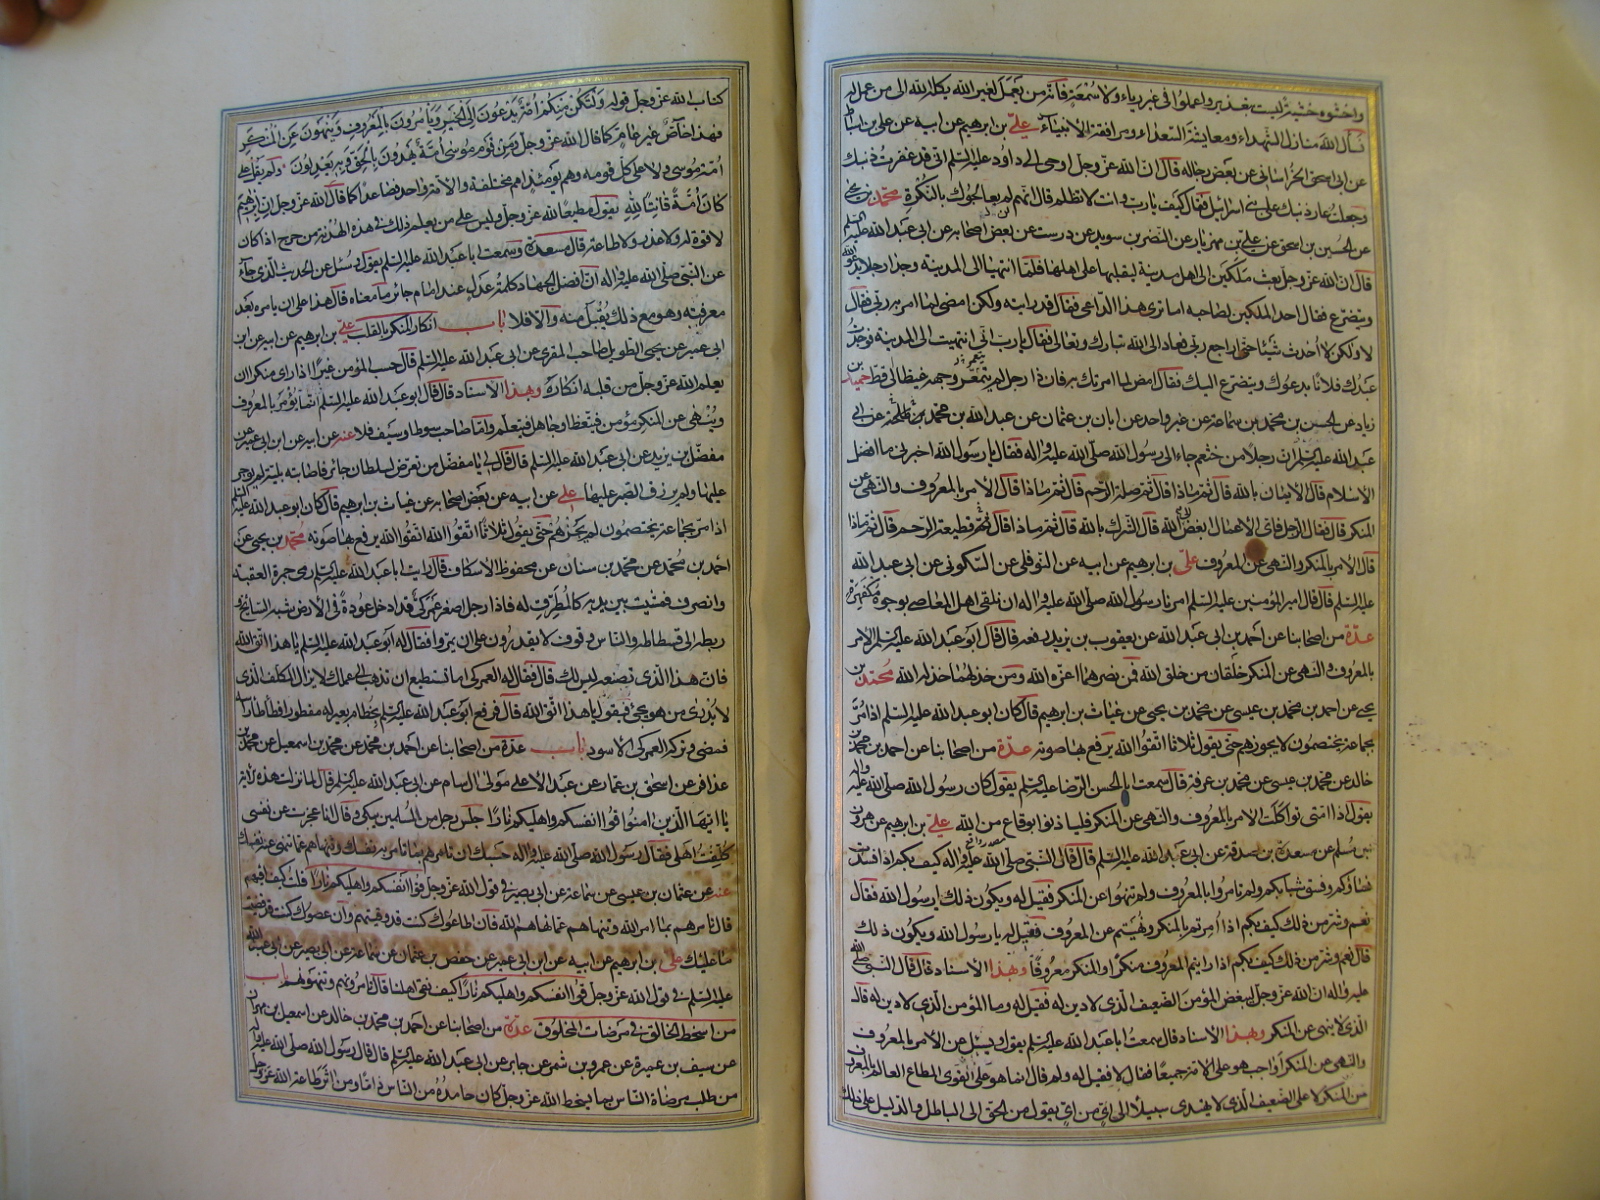 واخشوه خشية ليست بتعذير واعملوا في غير رياء ولا سمعة فانه من يعمل لغير الله يكله الله الى من عمل له
نسأل الله منازل الشهداء ومعايشة السعداء ومرافقة الانبياء علي بن ابرهيم عن ابيه عن علي بن اسباط
عن ابي اسحق الخراساني عن بعض رجاله قال ان الله عز وجل اوحى الى داود عليه السلم اني قد غفرت ذنبك
وجعلت عار ذنبك على بني اسرائيل فقال كيف يا رب وانت لا تظلم قال انهم لم يعاجلوك بالنكرة محمد بن يحيى
عن الحسين بن اسحق عن علي بن مهزيار عن النضر بن سويد عن درست عن بعض اصحابه عن ابي عبد الله عليه السلم
قال ان الله عز وجل بعث ملكين الى اهل مدينة ليقلبها على اهلها فلما انتهيا الى المدينة وجدا رجلا يدعو الله
ويتضرع فقال احد الملكين لصاحبه اما ترى هذا الداعي فقال قد رايته ولكن امضي لما امر به ربي فقال
لا ولكن لا احدث شيئا حتى اراجع ربي فعاد الى الله تبارك وتعالى فقال يا رب اني انتهيت الى المدينة فوجدت
عبدك فلانا يدعوك ويتضرع اليك فقال امض لما امرتك به فان ذا رجل لم يتمعر وجهه غيظا لي قط حميد بن
زياد عن الحسن بن محمد بن سماعة عن غير واحد عن ابان بن عثمان عن عبد الله بن محمد بن طلحة عن ابي
عبد الله عليه السلم ان رجلا من خثعم جاء الى رسول الله صلى الله عليه واله فقال يا رسول الله اخبرني ما افضل
الاسلام قال الايمان بالله قال ثم ماذا قال ثم صلة الرحم قال ثم ماذا قال الامر بالمعروف والنهي عن
المنكر قال فقال الرجل فاي الاعمال ابغض الى الله قال الشرك بالله قال ثم ماذا قال ثم قطيعة الرحم قال ثم ماذا
قال الامر بالمنكر والنهي عن المعروف علي بن ابرهيم عن ابيه عن النوفلي عن السكوني عن ابي عبد الله
عليه السلم قال قال امير المؤمنين عليه السلم امرنا رسول الله صلى الله عليه واله ان نلقى اهل المعاصي بوجوه مكفهرة
عدة من اصحابنا عن احمد بن ابي عبد الله عن يعقوب بن يزيد رفعه قال قال ابو عبد الله عليه السلم الامر
بالمعروف والنهي عن المنكر خلقان من خلق الله فمن نصرهما اعزه الله ومن خذلهما خذله الله محمد بن
يحيى عن احمد بن محمد بن عيسى عن محمد بن يحيى عن غياث بن ابرهيم قال كان ابو عبد الله عليه السلم اذا مر
بجماعة يختصمون لا يجوزهم حتى يقول ثلاثا اتقوا الله يرفع بها صوته عدة من اصحابنا عن احمد بن محمد بن
خالد عن محمد بن عيسى عن محمد بن عرفة قال سمعت ابا الحسن الرضا عليه السلم يقول كان رسول الله صلى الله عليه واله
يقول اذا امتي تواكلت الامر بالمعروف والنهي عن المنكر فلياذنوا بوقاع من الله علي بن ابرهيم عن هرون
بن مسلم عن مسعدة بن صدقة عن ابي عبد الله عليه السلم قال قال النبي صلى الله عليه واله كيف بكم اذا فسدت
نساؤكم وفسق شبابكم ولم تامروا بالمعروف ولم تنهوا عن المنكر فقيل له ويكون ذلك يا رسول الله فقال
نعم وشر من ذلك كيف بكم اذا امرتم بالمنكر ونهيتم عن المعروف فقيل له يا رسول الله ويكون ذلك
قال نعم وشر من ذلك كيف بكم اذا رايتم المعروف منكرا والمنكر معروفا وبهذا الاسناد قال قال النبي صلى الله
عليه واله ان الله عز وجل ليبغض المؤمن الضعيف الذي لا دين له فقيل له وما المؤمن الذي لا دين له قال
الذي لا ينهى عن المنكر وبهذا الاسناد قال سمعت ابا عبد الله عليه السلم يقول وسئل عن الامر بالمعروف
والنهي عن المنكر اواجب هو على الامة جميعا فقال لا فقيل له ولم قال انما هو على القوي المطاع العالم بالمعروف
من المنكر لا على الضعيف الذي لا يهتدي سبيلا الى اي من اي يقول من الحق الى الباطل والدليل على ذلك
كتاب الله عز وجل قوله ولتكن منكم امة يدعون الى الخير ويأمرون بالمعروف وينهون عن المنكر
فهذا خاص غير عام كما قال الله عز وجل ومن قوم موسى امة يهدون بالحق وبه يعدلون ولم يقل على
امة موسى ولا على كل قومه وهم يومئذ امم مختلفة والامة واحد فصاعدا كما قال الله عز وجل ان ابرهيم
كان امة قانتا لله يقول مطيعا لله عز وجل وليس على من يعلم ذلك في هذه الهدنة من حرج اذا كان
لا قوة له ولا عذر ولا طاعة قال مسعدة وسمعت ابا عبد الله عليه السلم يقول وسئل عن الحديث الذي جاء
عن النبي صلى الله عليه واله ان افضل الجهاد كلمة عدل عند امام جائر ما معناه قال هذا على ان يامره بعد
معرفته وهو مع ذلك يقبل منه والا فلا باب انكار المنكر بالقلب علي بن ابرهيم عن ابيه عن ابن
ابي عمير عن يحيى الطويل صاحب المقري عن ابي عبد الله عليه السلم قال حسب المؤمن غيرا اذا راى منكرا ان
يعلم الله عز وجل من قلبه انكاره وبهذا الاسناد قال قال ابو عبد الله عليه السلم انما يؤمر بالمعروف
وينهى عن المنكر مؤمن فيتعظ او جاهل فيتعلم واما صاحب سوط او سيف فلا عنه عن ابيه عن ابن ابي عمير عن
مفضل بن يزيد عن ابي عبد الله عليه السلم قال قال لي يا مفضل من تعرض لسلطان جائر فاصابته بلية لم يوجر
عليها ولم يرزق الصبر عليها علي عن ابيه عن بعض اصحابه عن غياث بن ابرهيم قال كان ابو عبد الله عليه السلم
اذا مر بجماعة يختصمون لم يجزهم حتى يقول ثلاثا اتقوا الله اتقوا الله يرفع بها صوته محمد بن يحيى عن
احمد بن محمد عن محمد بن سنان عن محفوظ الاسكاف قال رايت ابا عبد الله عليه السلم رمى جمرة العقبة
وانصرف فمشيت بين يديه كالمطرق له فاذا رجل اصفر عمركي قد ادخل عودة في الارض شبه السابح
ربطه الى فسطاطه والناس وقوف لا يقدرون على ان يمروا فقال له ابو عبد الله عليه السلم يا هذا اتق الله
فان هذا الذي تصنعه ليس لك قال فقال له العمركي اما تستطيع ان تذهب الى عملك لا يزال المكلف الذي
لا يدرى من هو يجئ فيقول يا هذا اتق الله قال فرفع ابو عبد الله عليه السلم بخطام بعير له مقطورا فطأطأ راسه
فمضى وتركه العمركي الاسود باب عدة من اصحابنا عن احمد بن محمد عن محمد بن اسمعيل عن محمد بن
عذافر عن اسحق بن عمار عن عبد الاعلى مولى ال سام عن ابي عبد الله عليه السلم قال لما نزلت هذه الاية
يا ايها الذين امنوا قوا انفسكم واهليكم نارا جلس رجل من المسلمين يبكي وقال انا عجزت عن نفسي
كلفت اهلي فقال رسول الله صلى الله عليه واله حسبك ان تامرهم بما تامر به نفسك وتنهاهم عما تنهى عنه نفسك
عنه عن عثمان بن عيسى عن سماعة عن ابي بصير في قول الله عز وجل قوا انفسكم واهليكم نارا قلت كيف اقيهم
قال تامرهم بما امر الله وتنهاهم عما نهاهم الله فان اطاعوك كنت قد وقيتهم وان عصوك كنت قد قضيت
ما عليك علي بن ابرهيم عن ابيه عن ابن ابي عمير عن حفص بن عثمان عن سماعة عن ابي بصير عن ابي عبد الله
عليه السلم في قول الله عز وجل قوا انفسكم واهليكم نارا كيف نقي اهلنا قال تامرونهم وتنهونهم باب
من اسخط الخالق في مرضات المخلوق عدة من اصحابنا عن احمد بن محمد بن خالد عن اسمعيل بن مهران
عن سيف بن عميرة عن عمرو بن شمر عن جابر عن ابي عبد الله عليه السلم قال قال رسول الله صلى الله عليه واله
من طلب مرضاة الناس بما يسخط الله عز وجل كان حامده من الناس ذاما ومن اثر طاعة الله عز وجل